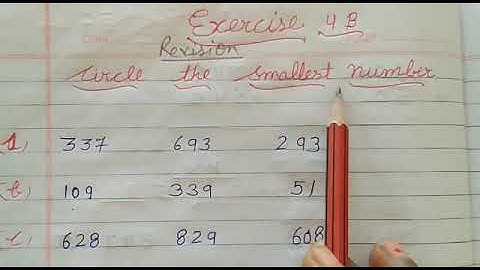 Exercise 4 B
Revision
Circle the smallest number
(a) 337 693 293
(b) 109 339 51
(c) 628 829 608